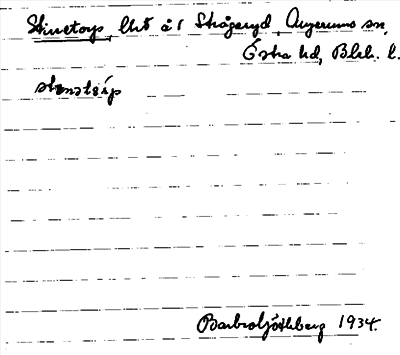 Hinetorp, lht å 1 Skogeryd, Augerums sn,
Östra hd, Blek. l.
stenstörp
Barbro Göthberg 1934.